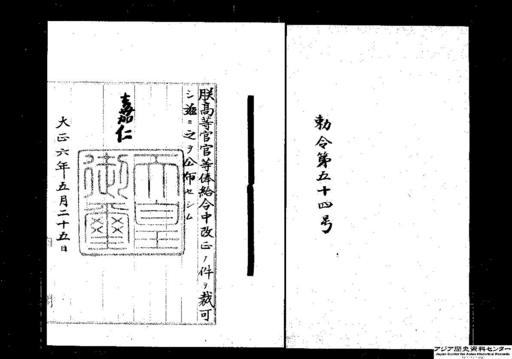 勅令第五十四号
朕高等官官等俸給令中改正ノ件ヲ裁可
シ茲ニ之ヲ公布セシム
嘉仁
天皇御璽
大正六年五月二十五日
アジア歴史資料センター
Japan Center for Asian Historical Records